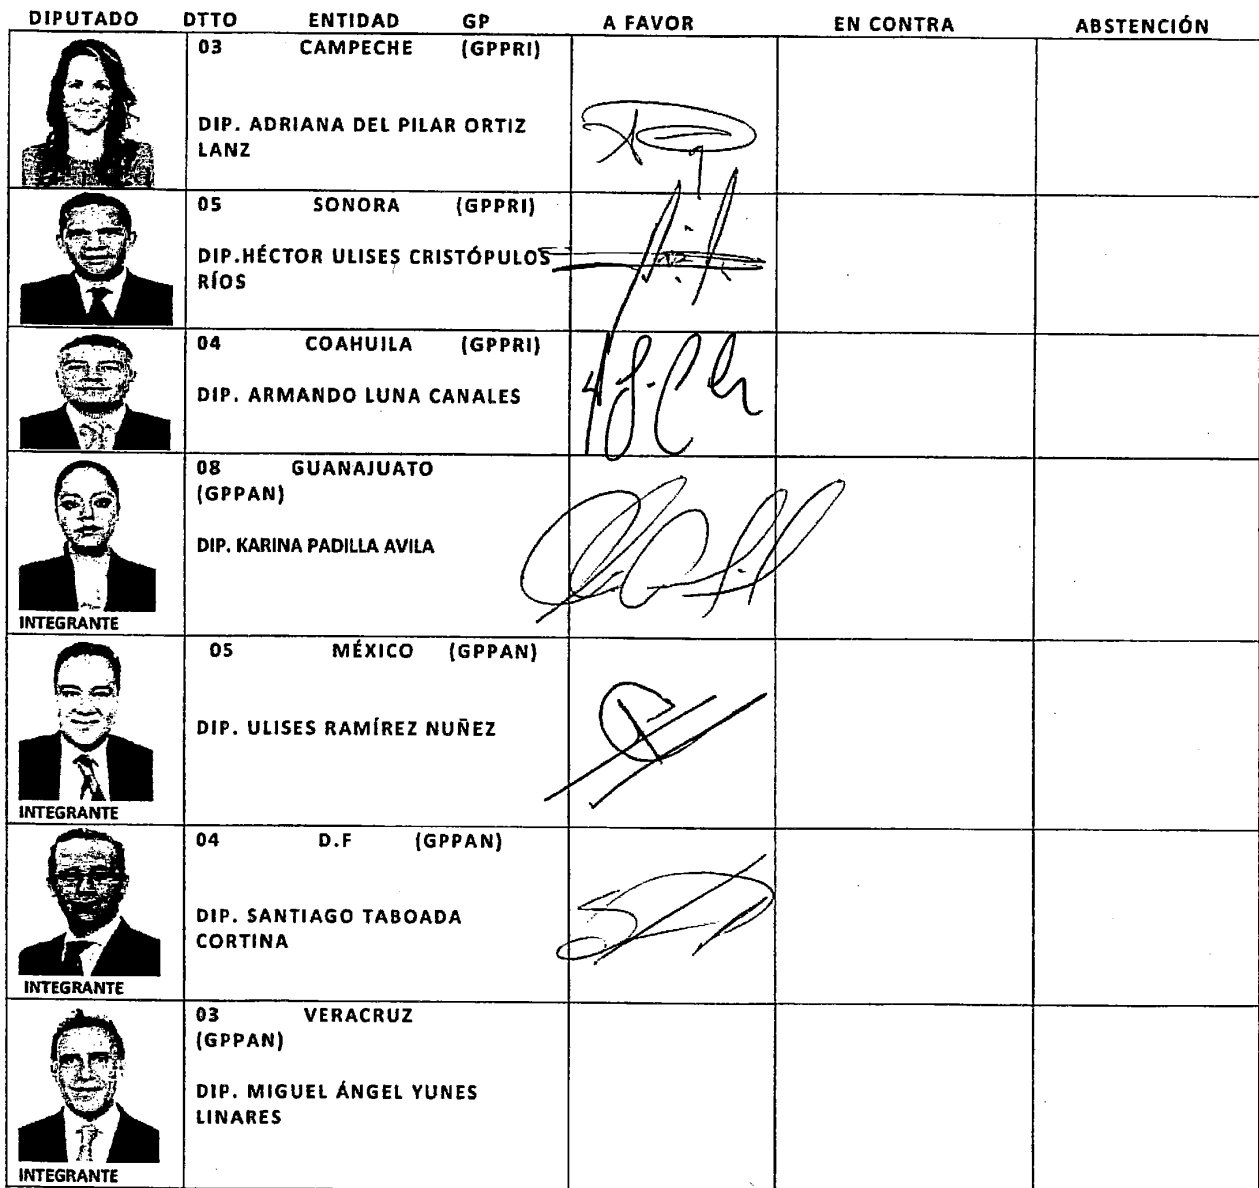 DIPUTADO DTTO ENTIDAD GP A FAVOR EN CONTRA ABSTENCIÓN
03 CAMPECHE (GPPRI)
DIP. ADRIANA DEL PILAR ORTIZ
LANZ
05 SONORA (GPPRI)
DIP.HÉCTOR ULISES CRISTÓPULOS
RÍOS
04 COAHUILA (GPPRI)
DIP. ARMANDO LUNA CANALES
08 GUANAJUATO
(GPPAN)
DIP. KARINA PADILLA AVILA
INTEGRANTE
05 MÉXICO (GPPAN)
DIP. ULISES RAMÍREZ NUÑEZ
INTEGRANTE
04 D.F (GPPAN)
DIP. SANTIAGO TABOADA
CORTINA
INTEGRANTE
03 VERACRUZ
(GPPAN)
DIP. MIGUEL ÁNGEL YUNES
LINARES
INTEGRANTE